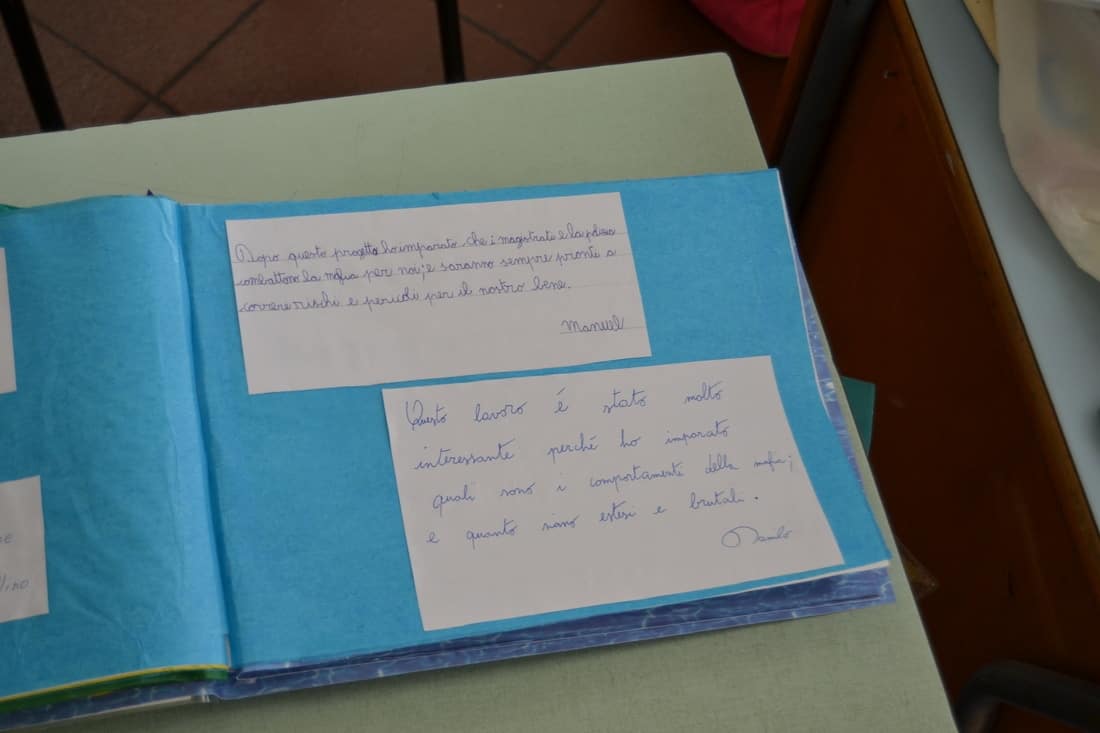 Dopo questo progetto ho imparato che i magistrati e la polizia
combattono la mafia per noi; e saranno sempre pronti a
correre rischi e pericoli per il nostro bene.
Manuel
Questo lavoro é stato molto
interessante perché ho imparato
quali sono i comportamenti della mafia;
e quanto siano estesi e brutali.
Danilo